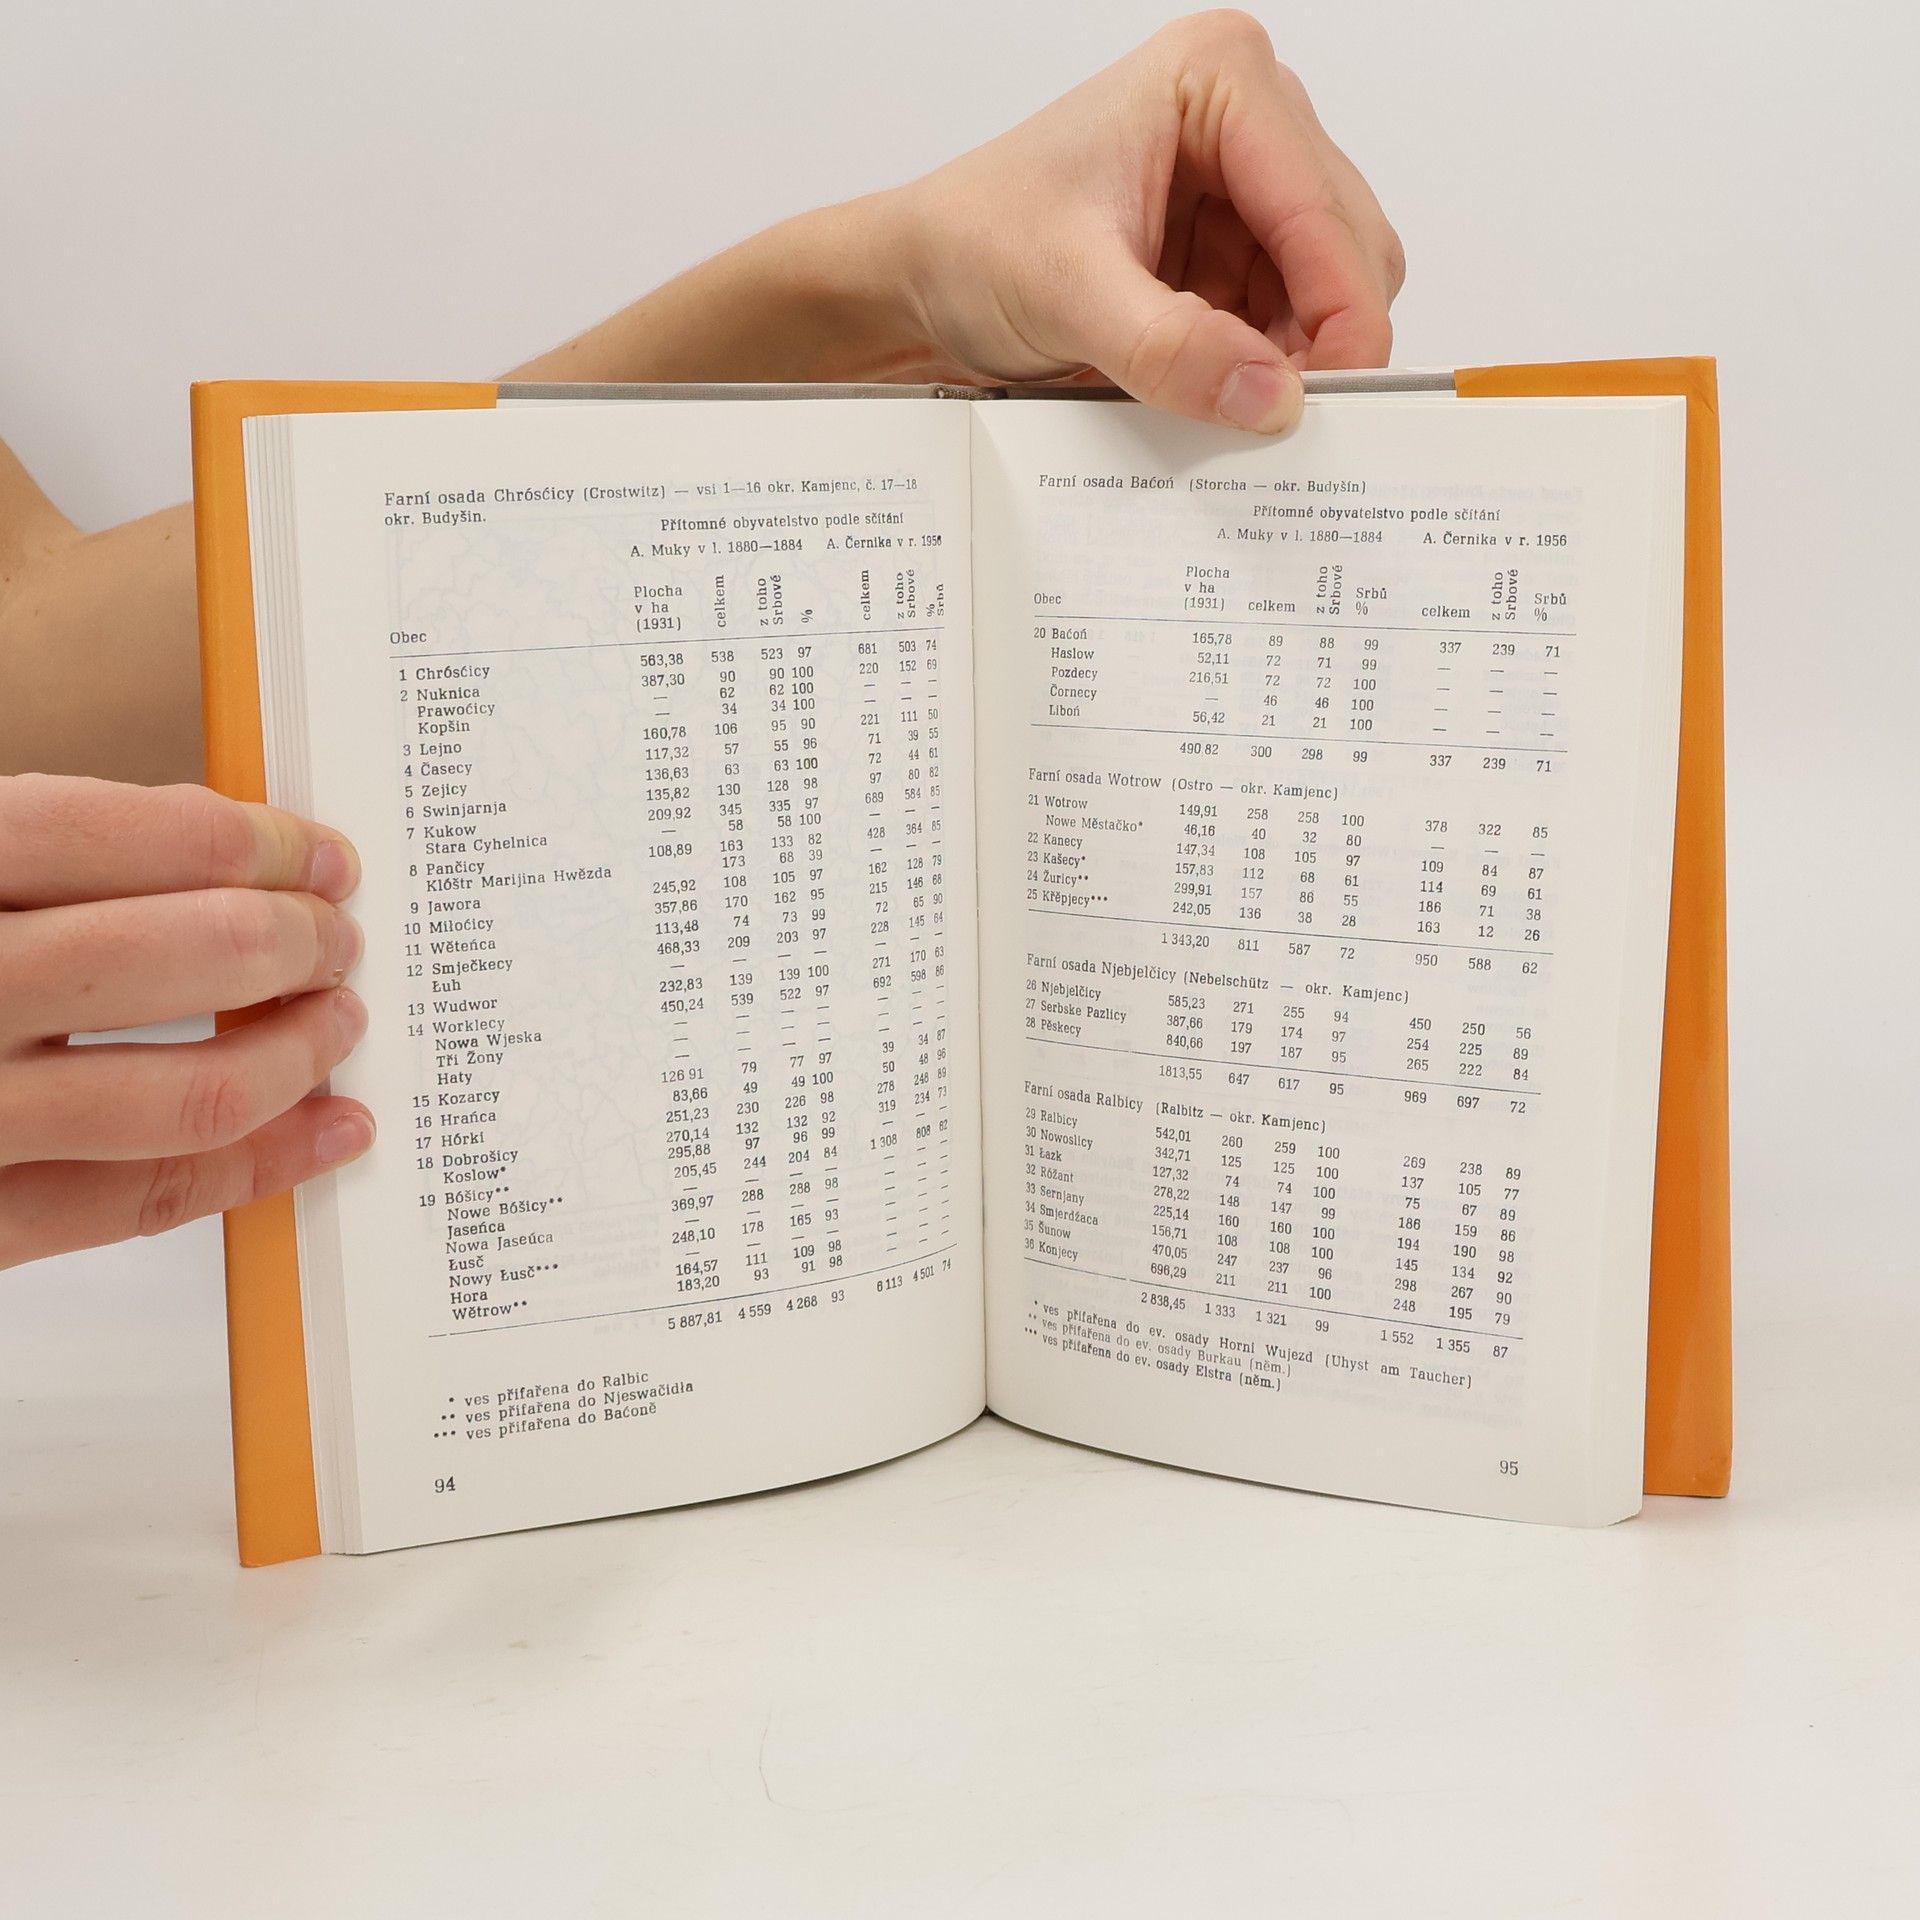 Farní osada Chrósćicy (Crostwitz) — vsi 1—16 okr. Kamjenc, č. 17—18
okr. Budyšin.
Přítomné obyvatelstvo podle sčítání
A. Muky v l. 1880—1884 A. Černika v r. 1956
Obec Plocha v ha (1931) celkem z toho Srbové % celkem z toho Srbové % Srbů
1 Chrósćicy 563,38 538 523 97 681 503 74
2 Nuknica 387,30 90 90 100 220 152 69
Prawoćicy — 62 62 100 — — —
Kopšin — 34 34 100 — — —
3 Lejno 160,78 106 95 90 221 111 50
4 Časecy 117,32 57 55 96 71 39 55
5 Zejicy 136,63 63 63 100 72 44 61
6 Swinjarnja 135,82 130 128 98 97 80 82
7 Kukow 209,92 345 335 97 689 584 85
Stara Cyhelnica — 58 58 100 — — —
8 Pančicy 108,89 163 133 82 428 364 85
Klóštr Marijina Hwězda 173 68 39
9 Jawora 245,92 108 105 97 162 128 79
10 Miłoćicy 357,86 170 162 95 215 146 68
11 Wěteńca 113,48 74 73 99 72 65 90
12 Smječkecy 468,33 209 203 97 228 145 64
Łuh — — — — — — —
13 Wudwor 232,83 139 139 100 271 170 63
14 Worklecy 450,24 539 522 97 692 598 86
Nowa Wjeska — — — — — — —
Tři Žony — — — — — — —
Haty — — — — — — —
15 Kozarcy 126 91 79 77 97 39 34 87
16 Hrańca 83,66 49 49 100 50 48 96
17 Hórki 251,23 230 226 98 278 248 89
18 Dobrošicy 270,14 132 132 92 319 234 73
Koslow* 295,88 97 96 99 — — —
19 Bóšicy** 205,45 244 204 84 1 308 808 62
Nowe Bóšicy** — — — — — — —
Jaseńca 369,97 288 288 98 — — —
Nowa Jaseúca — — — — — — —
Łusč 248,10 178 165 93 — — —
Nowy Łusč*** — — — — — — —
Hora 164,57 111 109 98 — — —
Wětrow** 183,20 93 91 98 — — —
5 887,81 4 559 4 268 93 6 113 4 501 74
* ves přifařena do Ralbic
** ves přifařena do Njeswačidła
*** ves přifařena do Baćoně
94
Farní osada Baćoń (Storcha — okr. Budyšín)
Přítomné obyvatelstvo podle sčítání
A. Muky v l. 1880—1884 A. Černika v r. 1956
Obec Plocha v ha (1931) celkem z toho Srbové Srbů % celkem z toho Srbové Srbů %
20 Baćoń 165,78 89 88 99 337 239 71
Haslow 52,11 72 71 99 — — —
Pozdecy 216,51 72 72 100 — — —
Čornecy — 46 46 100 — — —
Liboń 56,42 21 21 100 — — —
490 82 300 298 99 337 239 71
Farní osada Wotrow (Ostro — okr. Kamjenc)
21 Wotrow 149,91 258 258 100 378 322 85
Nowe Městačko* 46,16 40 32 80 — — —
22 Kanecy 147,34 108 105 97 109 84 87
23 Kašecy* 157,83 112 68 61 114 69 61
24 Žuricy** 299,91 157 86 55 186 71 38
25 Křěpjecy*** 242,05 136 38 28 163 12 26
1 343,20 811 587 72 950 588 62
Farní osada Njebjelčicy (Nebelschütz — okr. Kamjenc)
26 Njebjelčicy 585,23 271 255 94 450 250 56
27 Serbske Pazlicy 387,66 179 174 97 254 225 89
28 Pěskecy 840,66 197 187 95 265 222 84
1813,55 647 617 95 969 697 72
Farní osada Ralbicy (Ralbitz — okr. Kamjenc)
29 Ralbicy 542,01 260 259 100 269 238 89
30 Nowoslicy 342,71 125 125 100 137 105 77
31 Łazk 127,32 74 74 100 75 67 89
32 Róžant 278,22 148 147 99 186 159 86
33 Sernjany 225,14 160 160 100 194 190 98
34 Smjerdźaca 156,71 108 108 100 145 134 92
35 Šunow 470,05 247 237 96 298 267 90
36 Konjecy 696,29 211 211 100 248 195 79
2 838,45 1 333 1 321 99 1 552 1 355 87
* ves přifařena do ev. osady Horni Wujezd (Uhyst am Taucher)
** ves přifařena do ev. osady Burkau (něm.)
*** ves přifařena do ev. osady Elstra (něm.)
95